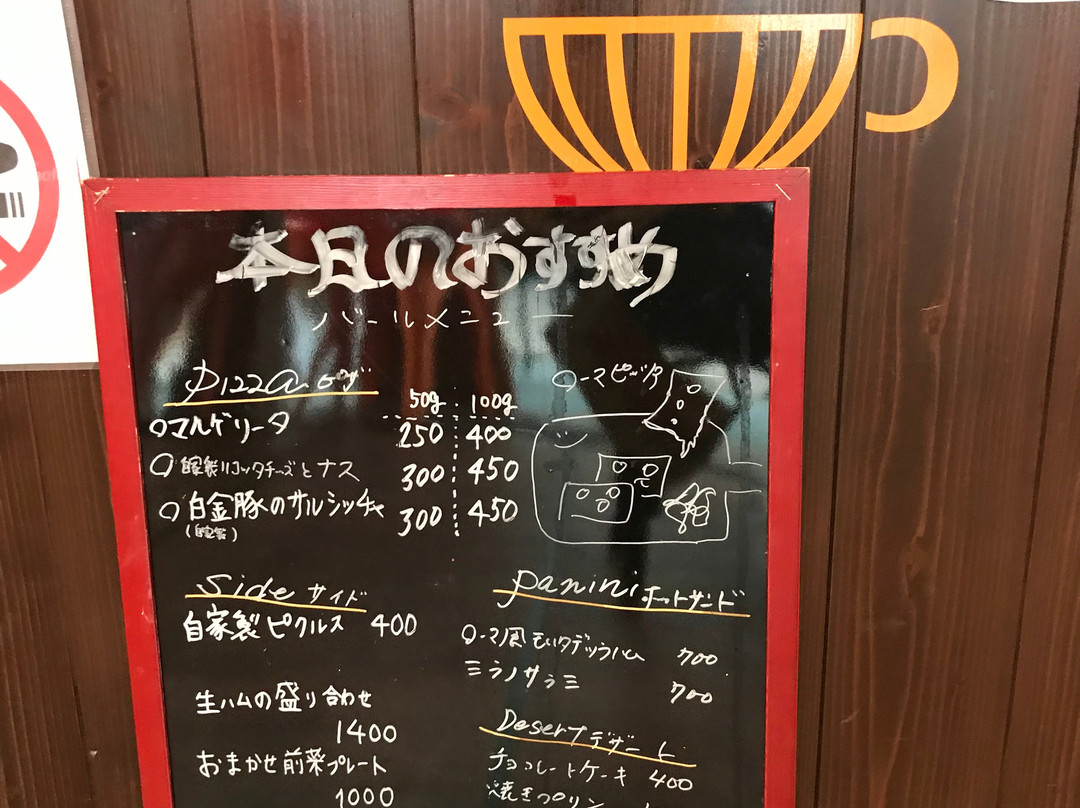 本日のおすすめ
バールメニュー
Pizza ピザ
50g 100g
マルゲリータ 250 400
自家製リコッタチーズとナス 300 450
白金豚のサルシッチャ 300 450
(自家製)
ローマピッツァ
Side サイド
自家製ピクルス 400
生ハムの盛り合わせ
1400
おまかせ前菜プレート
1000
panini ホットサンド
ローマ風モルタデッラハム 700
ミラノサラミ 700
Desert デザート
チョコレートケーキ 400
焼きプリン